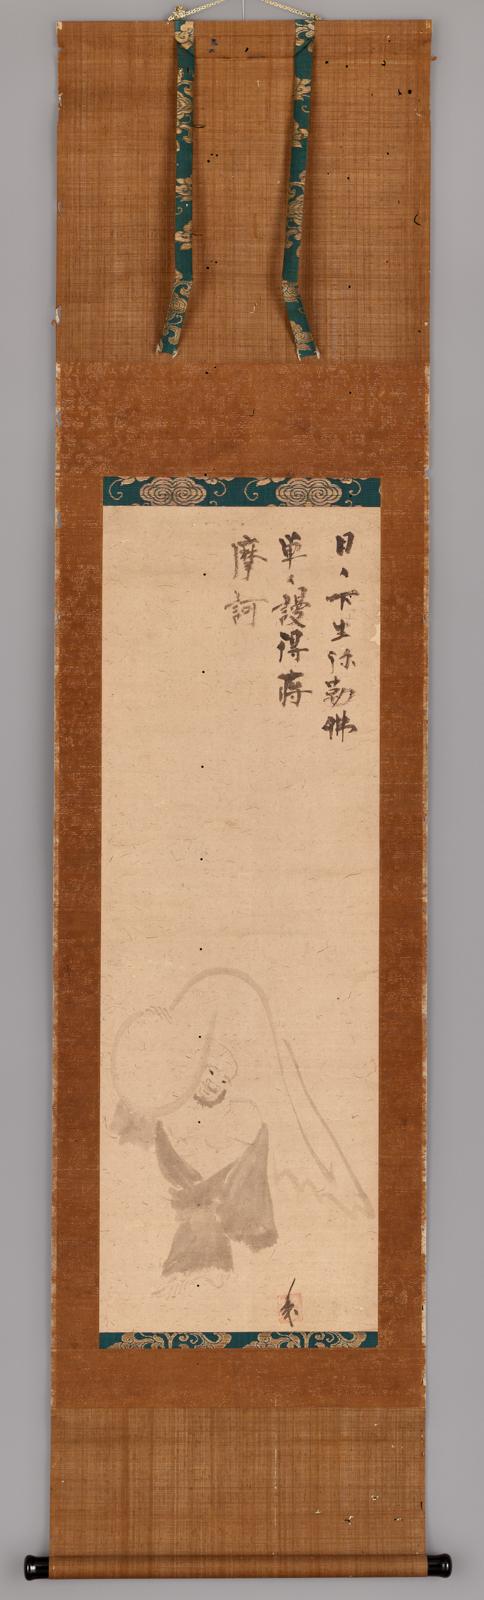 日々下生弥勒佛
単々謾得蒋
摩訶